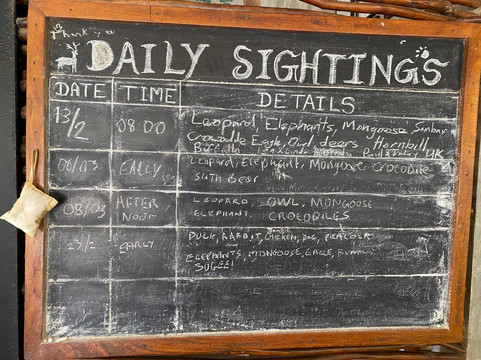 Thank you
DAILY SIGHTINGS
DATE TIME DETAILS
13/2 08:00 Leopard Elephants, Mongoose Sambar
Crocodile Eagle, Owl, deers, Hornbill
Buffalo UK
08/03 EALLY Leopard, Elephant, Mongoose, Crocodile
Sloth Bear
08/03 AFTER NOON LEOPARD, OWL, MONGOOSE
ELEPHANT, CROCODILES
23/2 EARLY DUCK, RABBIT, CHICKEN, DOG, PEACOCK
ELEPHANTS, MONGOOSE, EAGLE,